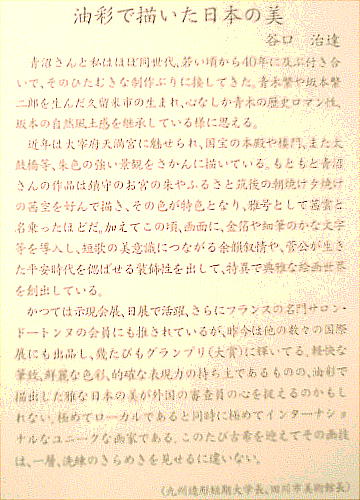 油彩で描いた日本の美
谷口　治達
青沼さんと私はほぼ同世代、若い頃から40年に及ぶ付き合
いで、そのひたむきな制作ぶりに接してきた。青木繁や坂本繁
二郎を生んだ久留米市の生まれ、心なしか青木の歴史ロマン性、
坂本の自然風土感を継承している様に思える。
近年は太宰府天満宮に魅せられ、国宝の本殿や楼門、また太
鼓橋等、朱色の強い景観をさかんに描いている。もともと青沼
さんの作品は鎮守のお宮の朱やふるさと筑後の朝焼け夕焼け
の茜空を好んで描き、その色が特色となり、雅号として茜雲と
名乗ったほどだ。加えてこの頃、画面に、金箔や細筆のかな文字
等を導入し、短歌の美意識につながる余韻叙情や、菅公が生き
た平安時代を偲ばせる装飾性を出して、特異で典雅な絵画世界
を創出している。
かつては示現会展、日展で活躍、さらにフランスの名門サロン・
ドートンヌの会員にも推されているが、昨今は他の数々の国際
展にも出品し、幾たびもグランプリ(大賞)に輝いてる。軽快な
筆致、鮮麗な色彩、的確な表現力の持ち主であるものの、油彩で
描出した雅な日本の美が外国の審査員の心を捉えるのかもし
れない。極めてローカルであると同時に極めてインターナショ
ナルなユニークな画家である。このたび古希を迎えてその画技
は、一層、洗練のきらめきを見せるに違いない。
(九州造形短期大学長、田川市美術館長)